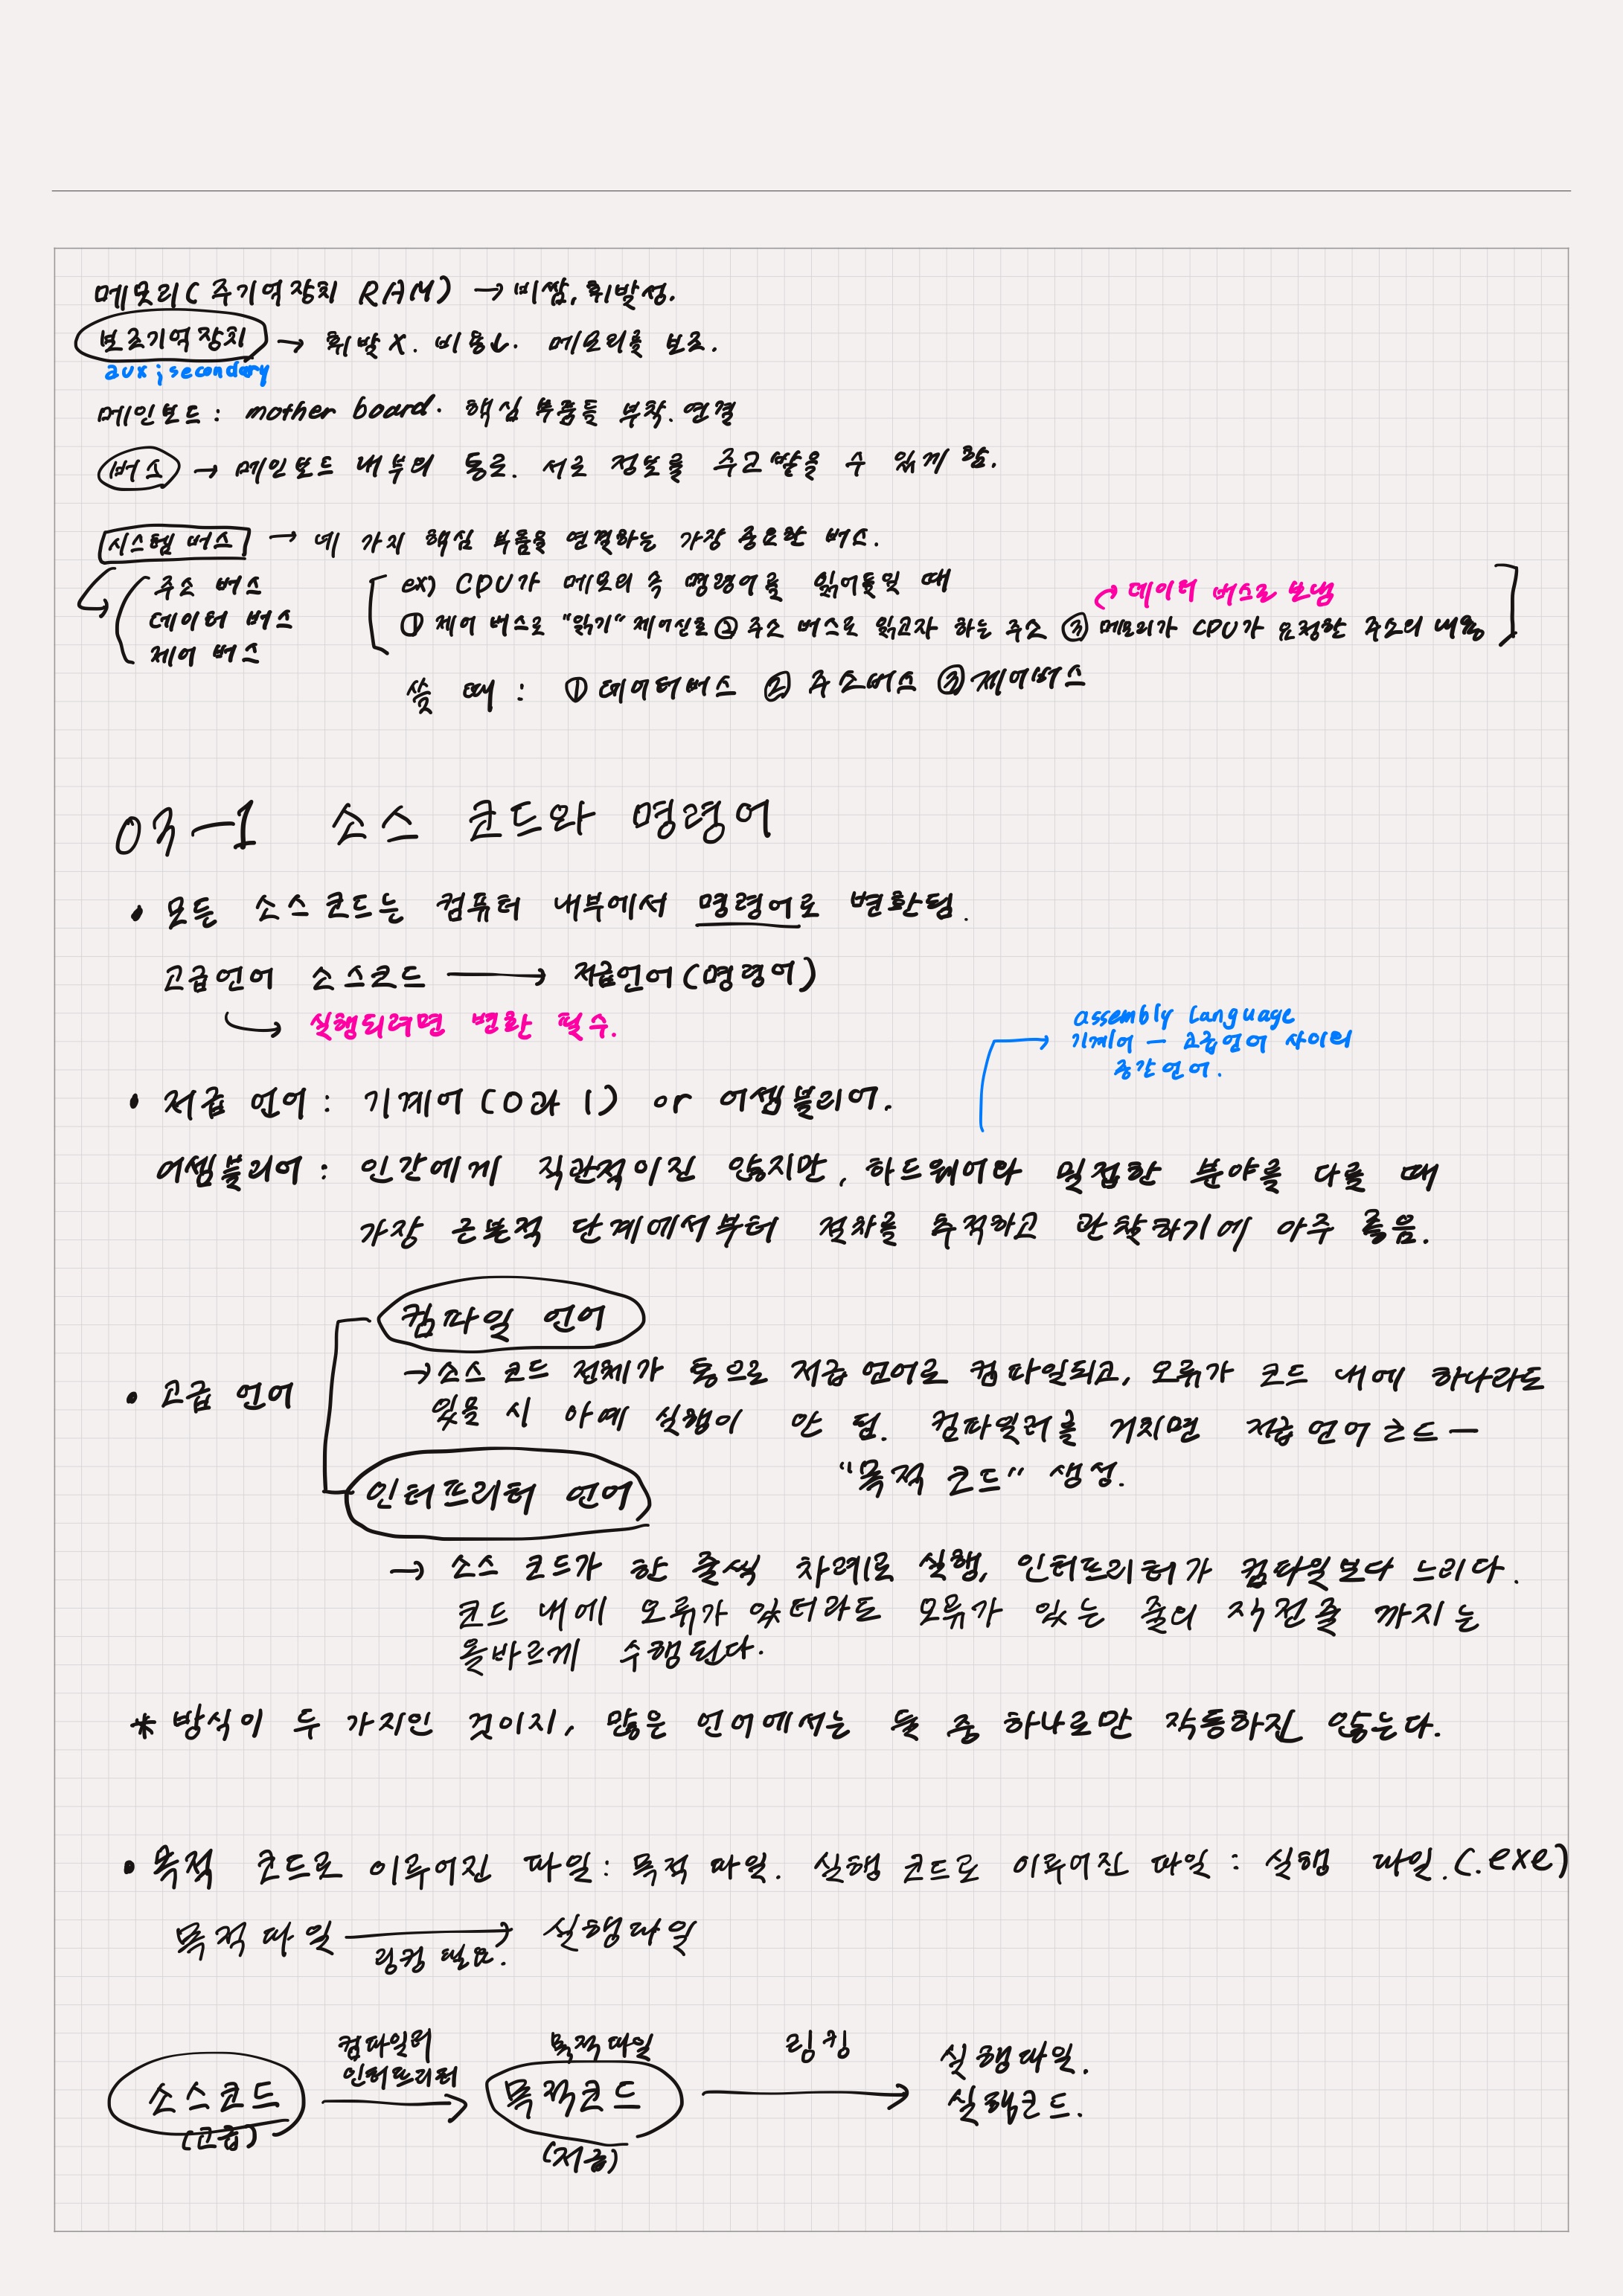 메모리( 주기억장치 RAM) → 비쌈, 휘발성.
보조기억장치 → 휘발 X. 비용↓. 메모리를 보조.
aux ; secondary
메인보드 : mother board. 핵심 부품들 부착. 연결
버스 → 메인보드 내부의 통로. 서로 정보를 주고받을 수 있게 함.
시스템 버스 → 네 가지 핵심 부품을 연결하는 가장 중요한 버스.
주소 버스
데이터 버스
제어 버스
ex) CPU가 메모리 속 명령어를 읽어들일 때
→ 데이터 버스로 보냄
① 제어 버스로 "읽기" 제어신호 ② 주소 버스로 읽고자 하는 주소 ③ 메모리가 CPU가 요청한 주소의 내용
쓸 때 : ① 데이터버스 ② 주소버스 ③ 제어버스
03-1 소스 코드와 명령어
• 모든 소스 코드는 컴퓨터 내부에서 명령어로 변환됨.
고급언어 소스코드 → 저급언어(명령어)
↳ 실행되려면 변환 필수.
assembly language
기계어 — 고급언어 사이의
중간 언어.
• 저급 언어 : 기계어 (0과 1) or 어셈블리어.
어셈블리어 : 인간에게 직관적이진 않지만, 하드웨어와 밀접한 분야를 다룰 때
가장 근본적 단계에서부터 절차를 추적하고 관찰하기에 아주 좋음.
컴파일 언어
→ 소스 코드 전체가 통으로 저급 언어로 컴파일되고, 오류가 코드 내에 하나라도
• 고급 언어
있을 시 아예 실행이 안 됨. 컴파일러를 거치면 저급 언어 코드 —
"목적 코드" 생성.
인터프리터 언어
→ 소스 코드가 한 줄씩 차례로 실행, 인터프리터가 컴파일보다 느리다.
코드 내에 오류가 있더라도 오류가 있는 줄의 직전줄 까지는
올바르게 수행된다.
* 방식이 두 가지인 것이지, 많은 언어에서는 둘 중 하나로만 작동하진 않는다.
• 목적 코드로 이루어진 파일 : 목적 파일. 실행 코드로 이루어진 파일 : 실행 파일.(.exe)
목적파일 → 실행파일
링킹 필요.
컴파일러
인터프리터
목적파일
링킹
실행파일.
소스코드 → 목적코드 → 실행코드.
(고급)
(저급)